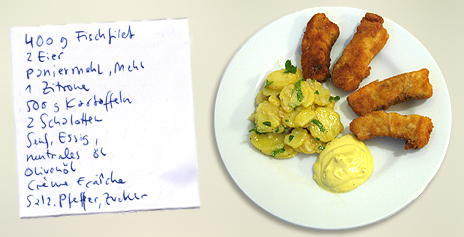 400 g Fischfilet
2 Eier
Paniermehl, Mehl
1 Zitrone
500 g Kartoffeln
2 Schalotten
Senf, Essig,
neutrales Öl
Olivenöl
Crème Fraîche
Salz, Pfeffer, Zucker